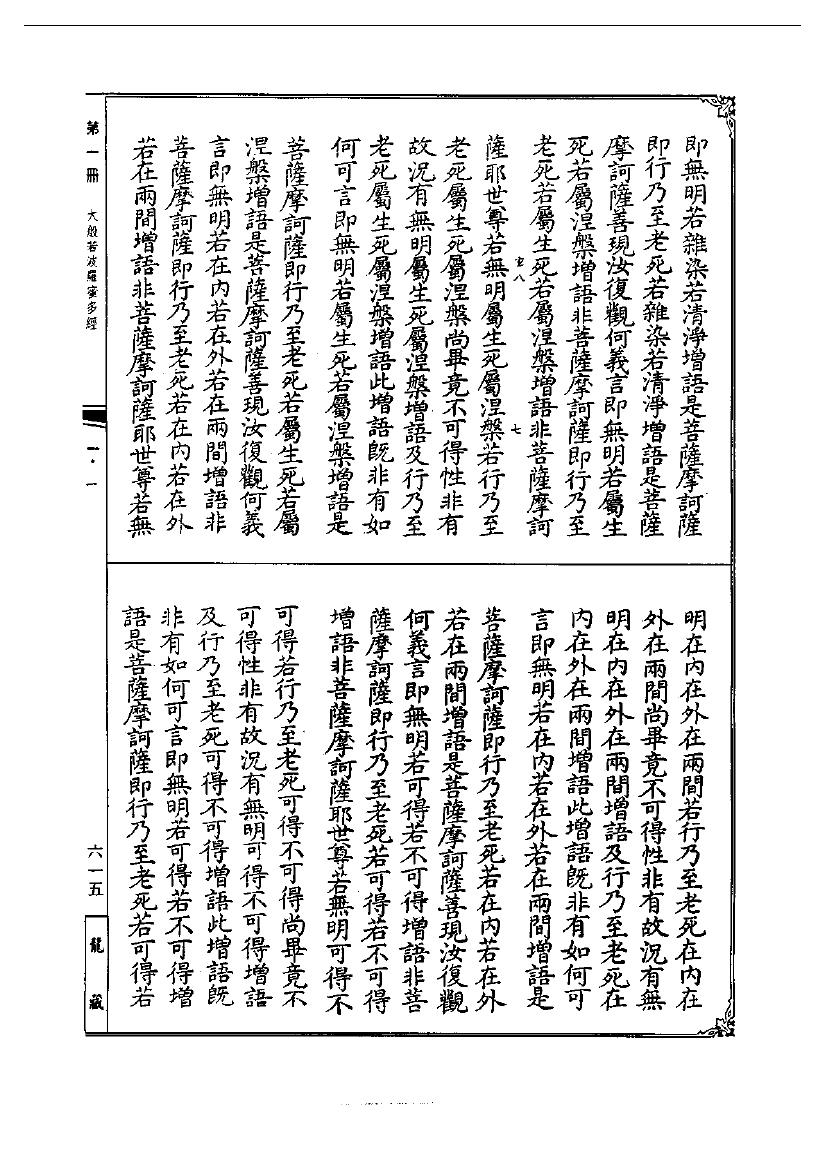 即無明若雜染若清淨增語是菩薩摩訶薩
即行乃至老死若雜染若清淨增語是菩薩
摩訶薩善現汝復觀何義言即無明若屬生
死若屬涅槃增語非菩薩摩訶薩即行乃至
老死若屬生死若屬涅槃增語非菩薩摩訶
薩耶世尊若無明屬生死屬涅槃若行乃至
老死屬生死屬涅槃尚畢竟不可得性非有
故況有無明屬生死屬涅槃增語及行乃至
老死屬生死屬涅槃增語此增語既非有如
何可言即無明若屬生死若屬涅槃增語是
菩薩摩訶薩即行乃至老死若屬生死若屬
涅槃增語是菩薩摩訶薩善現汝復觀何義
言即無明若在內若在外若在兩間增語非
菩薩摩訶薩即行乃至老死若在內若在外
若在兩間增語非菩薩摩訶薩耶世尊若無
明在內在外在兩間若行乃至老死在內在
外在兩間尚畢竟不可得性非有故況有無
明在內在外在兩間增語及行乃至老死在
內在外在兩間增語此增語既非有如何可
言即無明若在內若在外若在兩間增語是
菩薩摩訶薩即行乃至老死若在內若在外
若在兩間增語是菩薩摩訶薩善現汝復觀
何義言即無明若可得若不可得增語非菩
薩摩訶薩即行乃至老死若可得若不可得
增語非菩薩摩訶薩耶世尊若無明可得不
可得若行乃至老死可得不可得尚畢竟不
可得性非有故況有無明可得不可得增語
及行乃至老死可得不可得增語此增語既
非有如何可言即無明若可得若不可得增
語是菩薩摩訶薩即行乃至老死若可得若
第一冊 大般若波羅蜜多經
一·一
六一五
龍藏
七